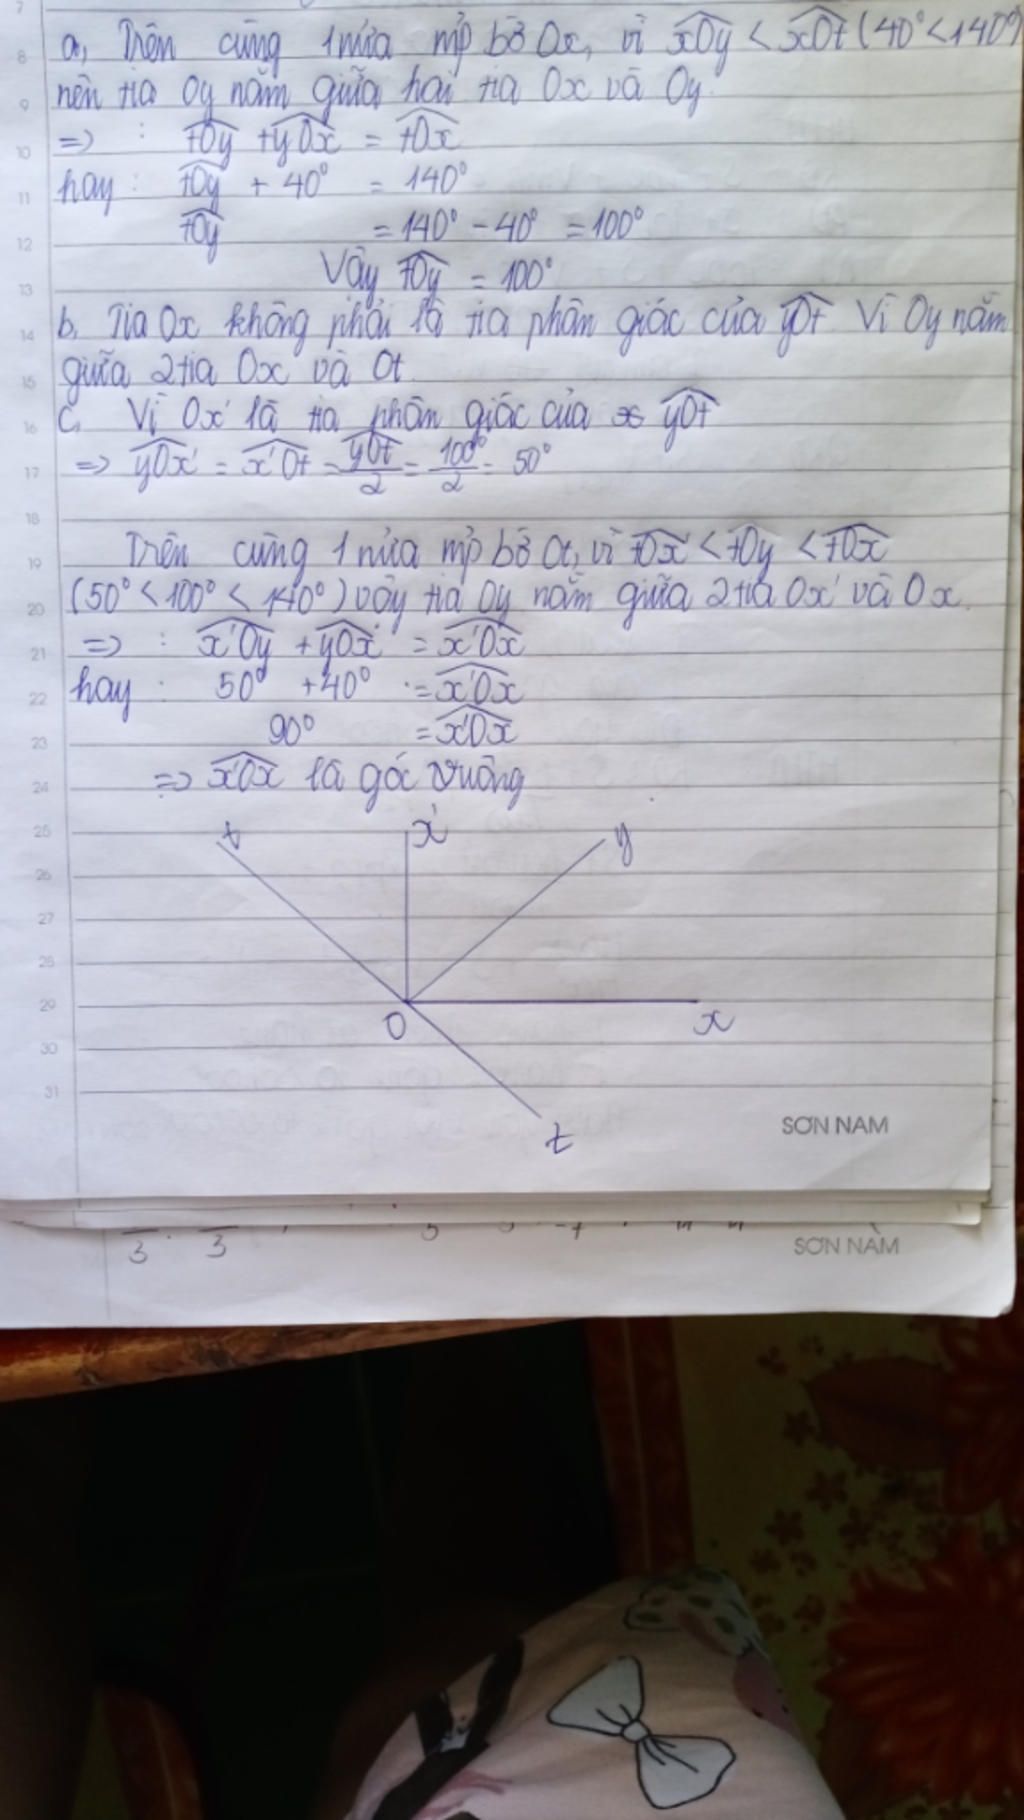 7
8 a, Trên cùng 1 nửa mp bờ Ox, vì xOy < xOt (40° < 140°)
9 nên tia Oy nằm giữa hai tia Ox và Oy.
10 => : tOy + yOx = tOx
11 hay : tOy + 40° = 140°
12 tOy = 140° - 40° = 100°
13 Vậy tOy = 100°
14 b. Tia Ox không phải là tia phân giác của yOt. Vì Oy nằm
15 giữa 2 tia Ox và Ot.
16 c. Vì Ox' là tia phân giác của yOt
17 => yOx' = x'Ot = yOt/2 = 100°/2 = 50°
18
19 Trên cùng 1 nửa mp bờ Ot, vì tOx' < tOy < tOx
20 (50° < 100° < 140°) vậy tia Oy nằm giữa 2 tia Ox' và Ox.
21 => : x'Oy + yOx = x'Ox
22 hay : 50° + 40° = x'Ox
23 90° = x'Ox
24 => x'Ox là góc vuông
25 t x' y
26
27
28
29 O x
30
31
t
SƠN NAM
3 3 5
SƠN NAM